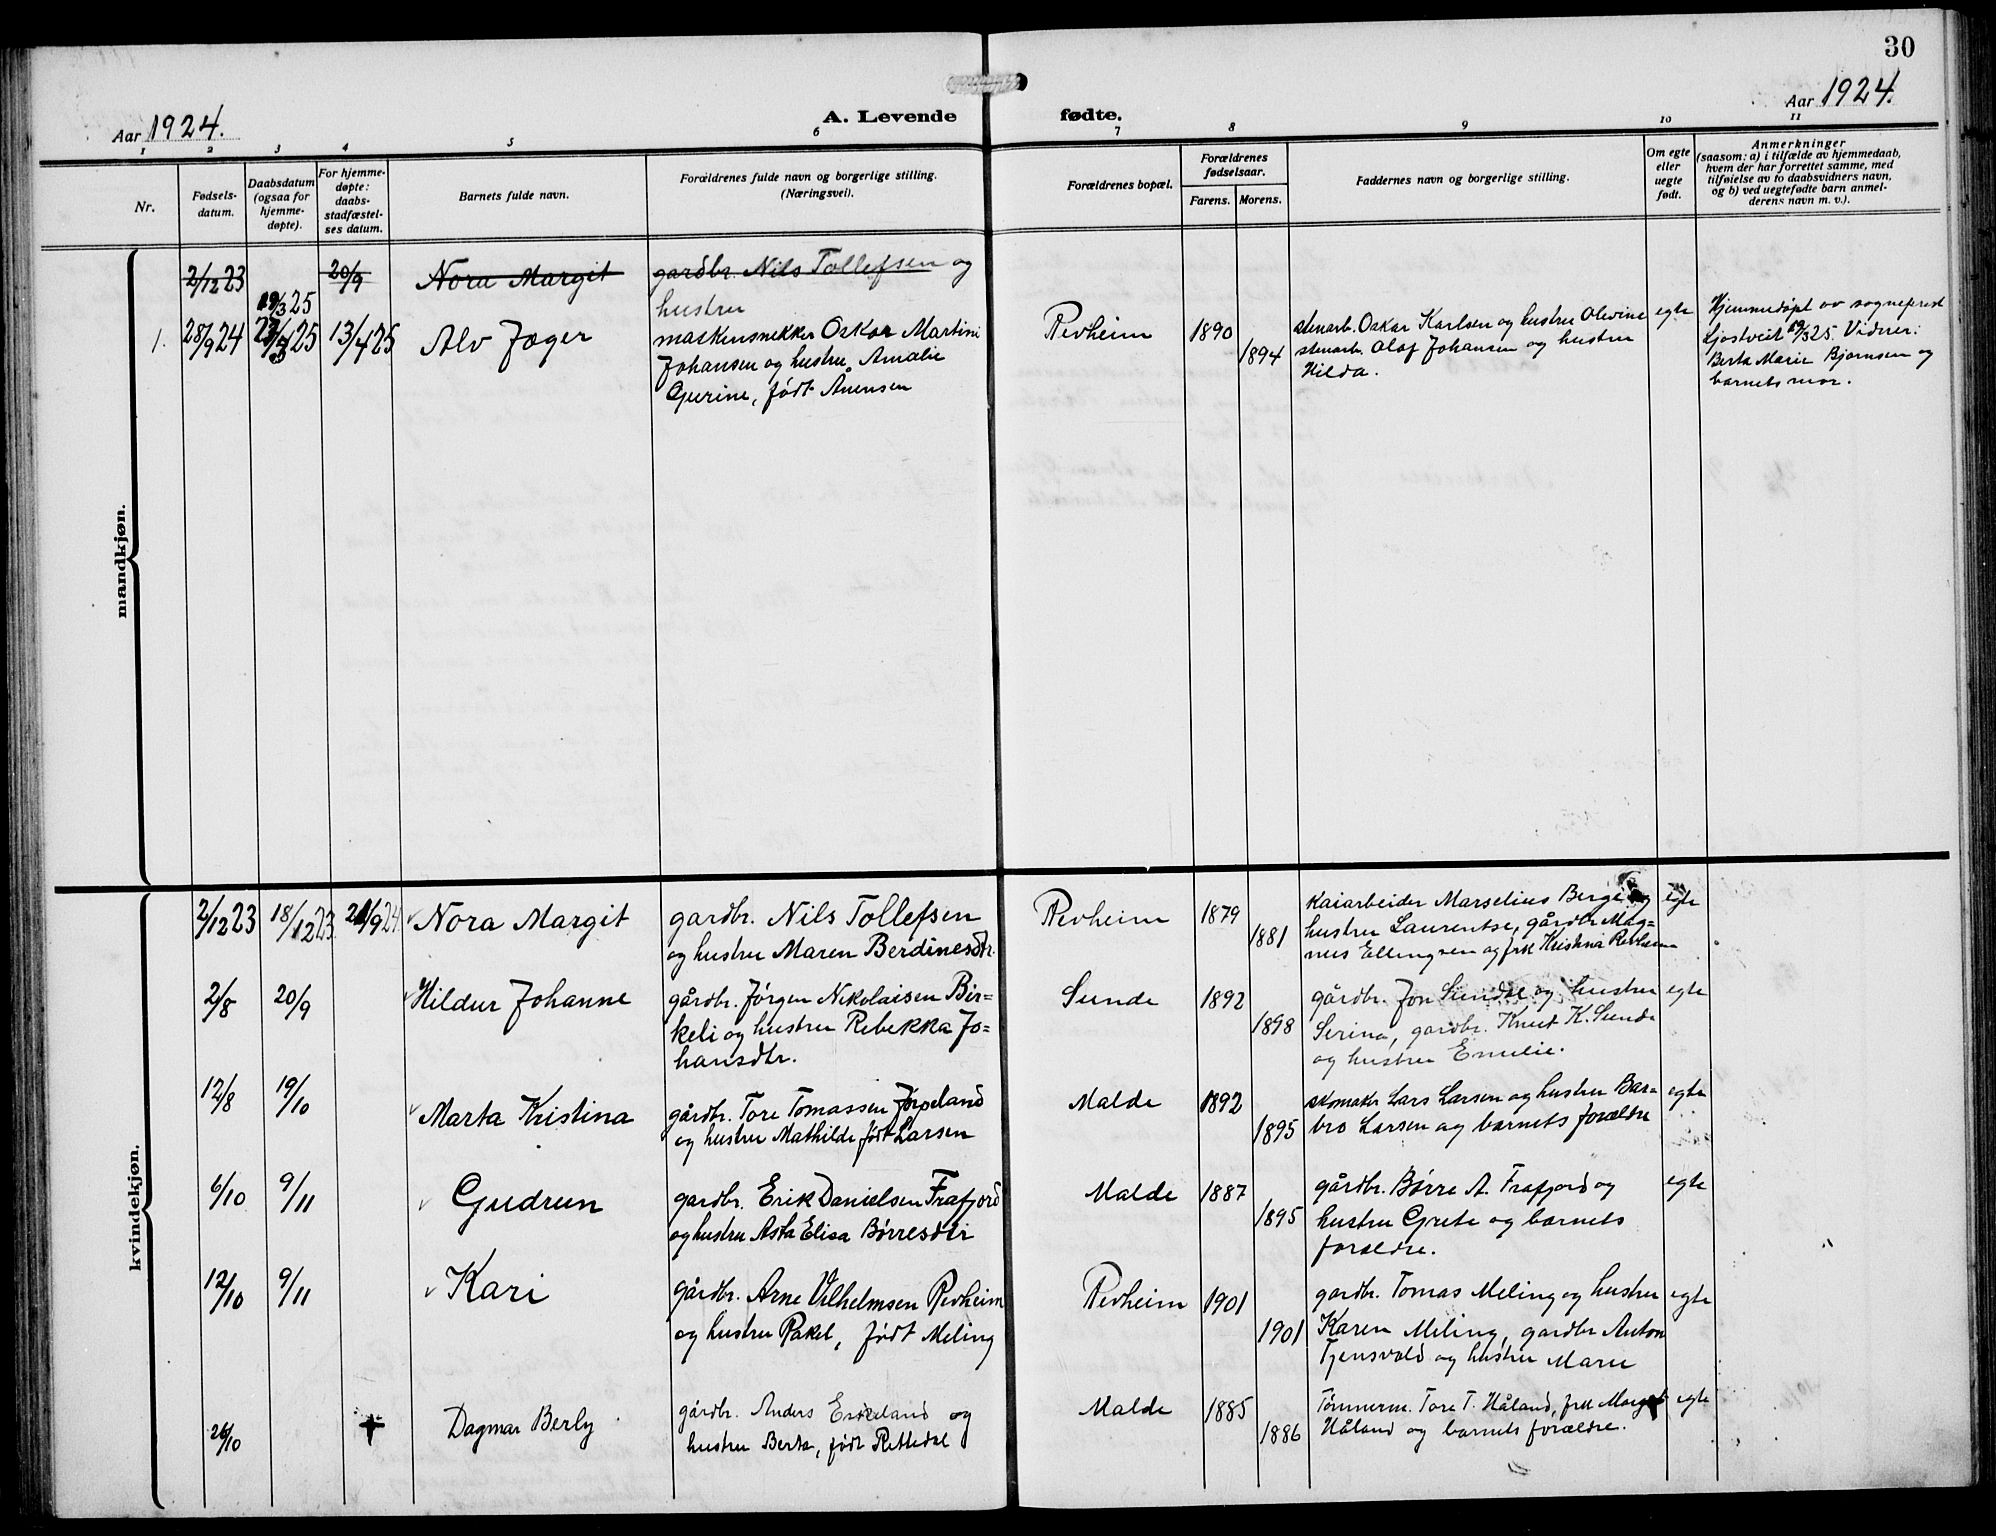 30
Aar 1924.
A. Levende fødte.
Aar 1924.
1 2 3 4 5 6 7 8 9 10 11
Nr.
Fødsels-
datum.
Daabsdatum
(ogsaa for
hjemme-
døpte).
For hjemme-
døpte:
daabs-
stadfæstel-
ses datum.
Barnets fulde navn.
Forældrenes fulde navn og borgerlige stilling.
(Næringsvei).
Forældrenes bopæl.
Forældrenes
fødselsaar.
Farens. Morens.
Faddernes navn og borgerlige stilling.
Om egte
eller
uegte
født.
Anmerkninger
(saasom: a) i tilfælde av hjemmedaab,
hvem der har forrettet samme, med
tilføielse av to daabsvidners navn,
og b) ved uegtefødte barn anmel-
derens navn m. v.).
mandkjøn.
2/12 23 20/9 Nora Margit gardbr. Nils Tollefsen og
hustru
1. 28/9 24 19/3 25 13/4 25 Alv Jæger
maskinsnekker Oskar Martin
Johansen og hustru Amalie
Gurine, født Ånensen
Revheim 1890 1894
stenarb. Oskar Karlsen og hustru Olevine
stenarb. Olaf Johansen og hustru
Hilda.
egte
Hjemmedøpt av sogneprest
Ljostveit 19/3 25. Vidner:
Berta Marie Bjørnsen og
barnets mor.
kvindekjøn.
2/12 23 18/12 23 21/9 24 Nora Margit
gardbr. Nils Tollefsen
og hustru Maren Berdinesdtr.
Revheim 1879 1881
Kaiarbeider Marselius Berge og
hustru Laurentse, gårdbr. Mag-
nus Ellingsen og frk Kristina Revheim
egte
2/8 20/9 Hildur Johanne
gårdbr. Jørgen Nikolaisen Bir-
keli og hustru Rebekka Jo-
hansdtr.
Sunde 1892 1898
gårdbr. Jon Sunde og hustru
Serina, gardbr. Knut K. Sunde
og hustru Emilie.
egte
12/8 19/10 Marta Kristina
gårdbr. Tore Tomassen Jørpeland
og hustru Mathilde født Larsen
Malde 1892 1895
skomaker Lars Larsen og hustru Bar-
bro Larsen og barnets forældre
egte
6/10 9/11 Gudrun
gardbr. Erik Danielsen Frafjord
og hustru Asta Elisa Børresdtr
Malde 1887 1895
gårdbr. Børre A. Frafjord og
hustru Grete og barnets
forældre.
egte
12/10 9/11 Kari
gårdbr. Arne Vilhelmsen Revheim
og hustru Rakel, født Meling
Revheim 1901 1901
gardbr. Tomas Meling og hustru
Karen Meling, gardbr Anton
Tjensvold og hustru Marie
egte
26/10 Dagmar Berly
gårdbr. Anders Eskeland og
hustru Berta, født Rettedal
Malde 1885 1886
Tømmerm. Tore T. Håland, frk Margit
Håland og barnets forældre.
egte